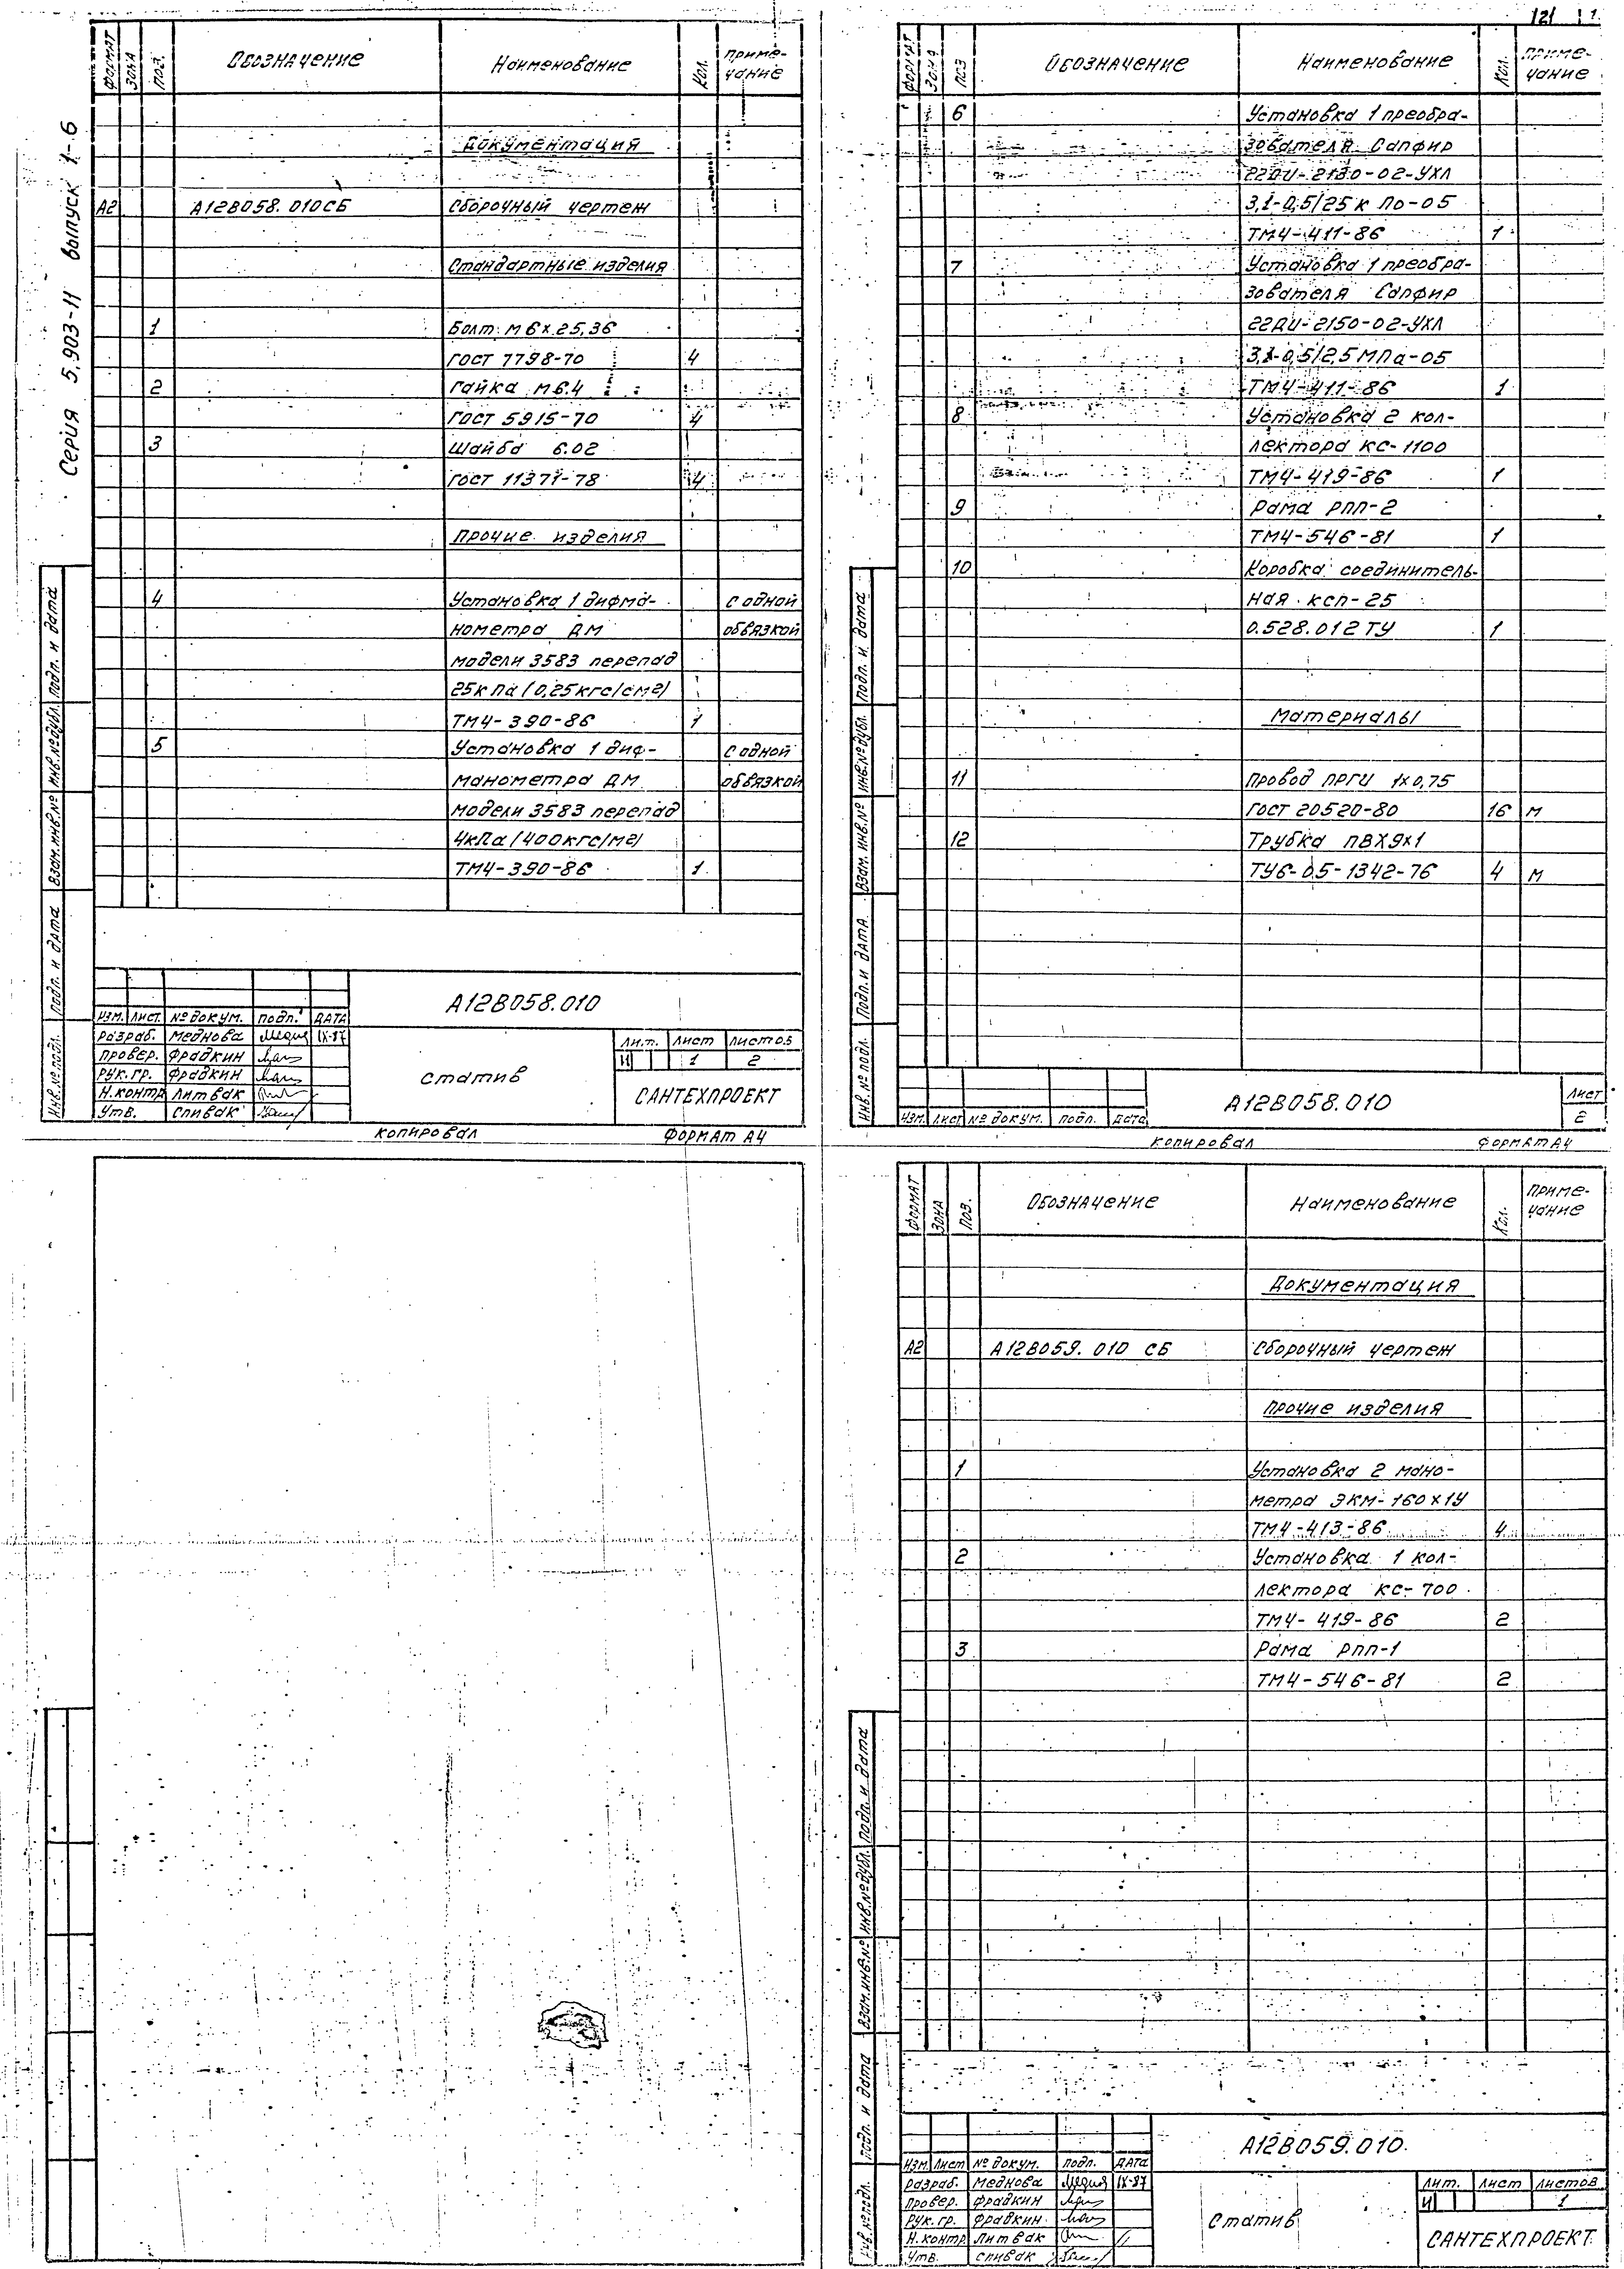 Серия 5.903-11 выпуск 1-6
Формат Зона Поз. Обозначение Наименование Кол. Примечание
Документация
А2 А12В058.010СБ Сборочный чертеж
Стандартные изделия
1 Болт М6×25,36
ГОСТ 7798-70 4
2 Гайка М6.4
ГОСТ 5915-70 4
3 Шайба 6.02
ГОСТ 11371-78 4
Прочие изделия
4 Установка 1 дифма- с одной
нометра ДМ обвязкой
модели 3583 перепад
25кПа (0,25кгс/см2)
ТМ4-390-86 1
5 Установка 1 диф- с одной
манометра ДМ обвязкой
модели 3583 перепад
4кПа (400кгс/м2)
ТМ4-390-86 1
Инв.№ подл. Подп. и дата Взам.инв.№ Инв.№ дубл. Подп. и дата
А12В058.010
Изм. Лист № докум. Подп. Дата
Разраб. Меднова IX-87
Провер. Фрадкин
Рук.гр. Фрадкин
Н.контр Литвак
Утв. Спивак
Статив
Лит. Лист Листов
И 1 2
САНТЕХПРОЕКТ
Копировал Формат А4
121
Формат Зона Поз Обозначение Наименование Кол. Примечание
6 Установка 1 преобра-
зователя Сапфир
22ДИ-2130-02-УХЛ
3,1-0,5/25кПа-05
ТМ4-411-86 1
7 Установка 1 преобра-
зователя Сапфир
22ДИ-2150-02-УХЛ
3,1-0,5/2,5МПа-05
ТМ4-411-86 1
8 Установка 2 кол-
лектора КС-1100
ТМ4-419-86 1
9 Рама РПП-2
ТМ4-546-81 1
10 Коробка соединитель-
ная КСП-25
0.528.012 ТУ 1
Материалы
11 Провод ПРГИ 1×0,75
ГОСТ 20520-80 16 м
12 Трубка ПВХ9×1
ТУ6-05-1342-76 4 м
Инв.№ подл. Подп. и дата Взам.инв.№ Инв.№ дубл. Подп. и дата
Изм. Лист № докум. Подп. Дата
А12В058.010
Лист
2
Копировал Формат А4
Формат Зона Поз. Обозначение Наименование Кол. Примечание
Документация
А2 А12В059.010 СБ Сборочный чертеж
Прочие изделия
1 Установка 2 мано-
метра ЭКМ-160×1У
ТМ4-413-86 4
2 Установка 1 кол-
лектора КС-700
ТМ4-419-86 2
3 Рама РПП-1
ТМ4-546-81 2
Инв.№ подл. Подп. и дата Взам.инв.№ Инв.№ дубл. Подп. и дата
А12В059.010
Изм. Лист № докум. Подп. Дата
Разраб. Меднова IX-87
Провер. Фрадкин
Рук.гр. Фрадкин
Н.контр Литвак
Утв. Спивак
Статив
Лит. Лист Листов
И 1
САНТЕХПРОЕКТ